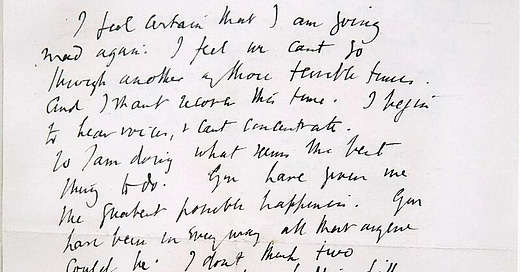 I feel certain that I am going
mad again. I feel we cant go
through another of those terrible times.
And I shant recover this time. I begin
to hear voices, & cant concentrate.
So I am doing what seems the best
thing to do. You have given me
the greatest possible happiness. You
have been in every way all that anyone
could be. I dont think two